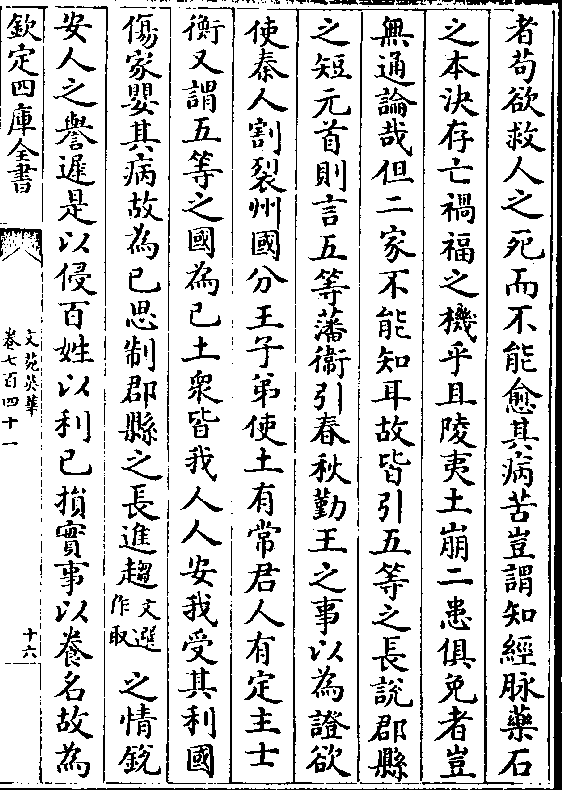 者苟欲救人之死而不能愈其病苦豈謂知經脉藥石
之本決存亡禍福之機乎且陵夷土崩二患俱免者豈
無通論哉但二家不能知耳故皆引五等之長說郡縣
之短元首則言五等藩衛引春秋勤王之事以為證欲
使秦人割裂州國分王子弟使土有常君人有定主士
衡又謂五等之國為已土衆皆我人人安我受其利國
傷家嬰其病故為已思制郡縣之長進趨文選作取之情銳
安人之譽遲是以侵百姓以利已損實事以養名故為
欽定四庫全書
文苑英華
卷七百四十一
十六